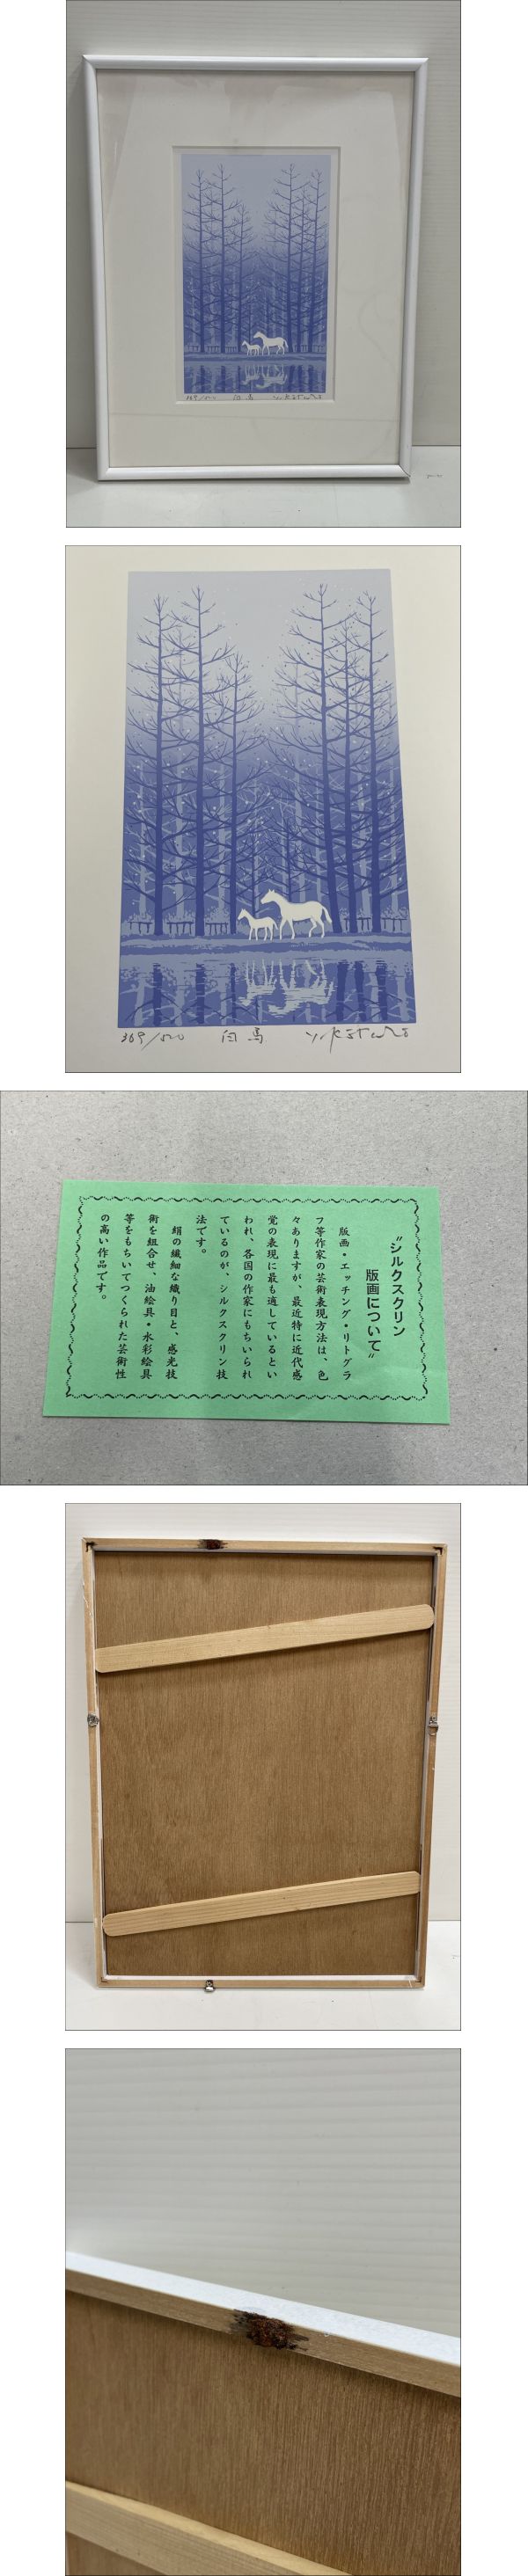 369/500 白馬
"シルクスクリン
版画について"
版画・エッチング・リトグラ
フ等作家の芸術表現方法は、色
々ありますが、最近特に近代感
覚の表現に最も適しているとい
われ、各国の作家にもちいられ
ているのが、シルクスクリン技
法です。
絹の繊細な織り目と、感光技
術を組合せ、油絵具・水彩絵具
等をもちいてつくられた芸術性
の高い作品です。